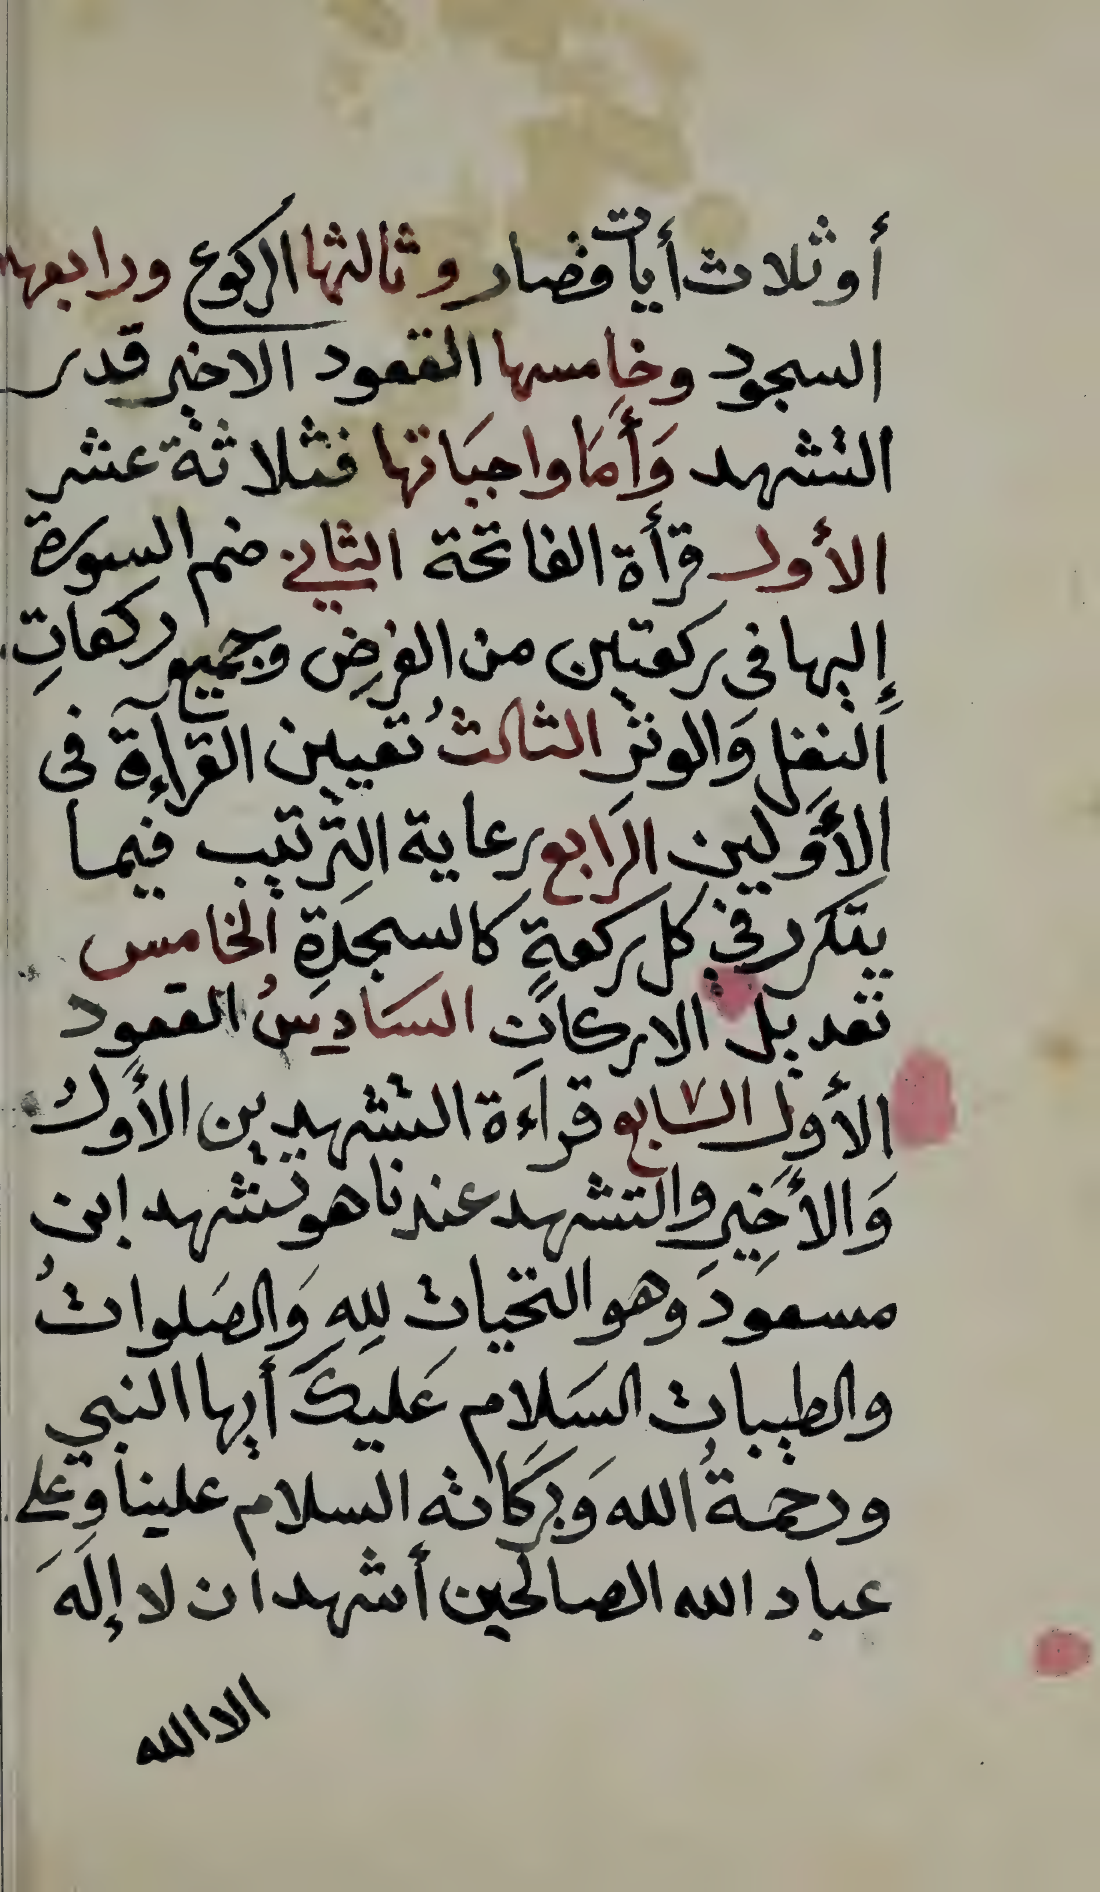 أو ثلاث أيات قصار وثالثها الركوع ورابعها
السجود وخامسها القعود الاخير قدر
التشهد وَأَمَا واجبَاتها فثلاثة عشر
الأول قرأة الفاتحة الثاني ضم السورة
إليها فى ركعتين من الفرض وجميع ركعاتِ
النفل وَالوتر الثالثُ تعيين القراءة فى
الأوَلين الرَابع رعاية الترتيب فيما
يتكرر في كل ركعةٍ كالسجدَةِ الخامس
تعديل الاركانِ السَادِسُ القعود
الأول السابع قراءة التشهدين الأول
وَالأخِيرِ والتشهد عندنا هو تشهد ابن
مسعود وَهو التحيات للهِ وَالصَلواتُ
والطيبات السَلام عَليكَ أيها النبي
ورحمةُ الله وَبركاته السلام علينا وَعلى
عباد الله الصالحين أشهد ان لا إلَهَ
الا الله